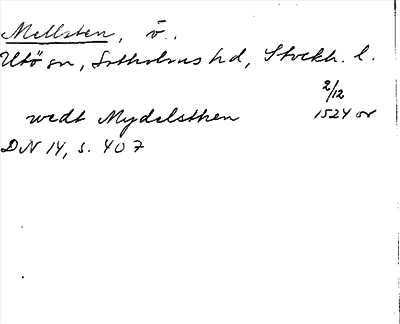 Mellsten, ö.
Utö sn, Sotholms hd, Stockh. l.
2/12
wedt Mydelsthen 1524 or
DN 14, s. 407